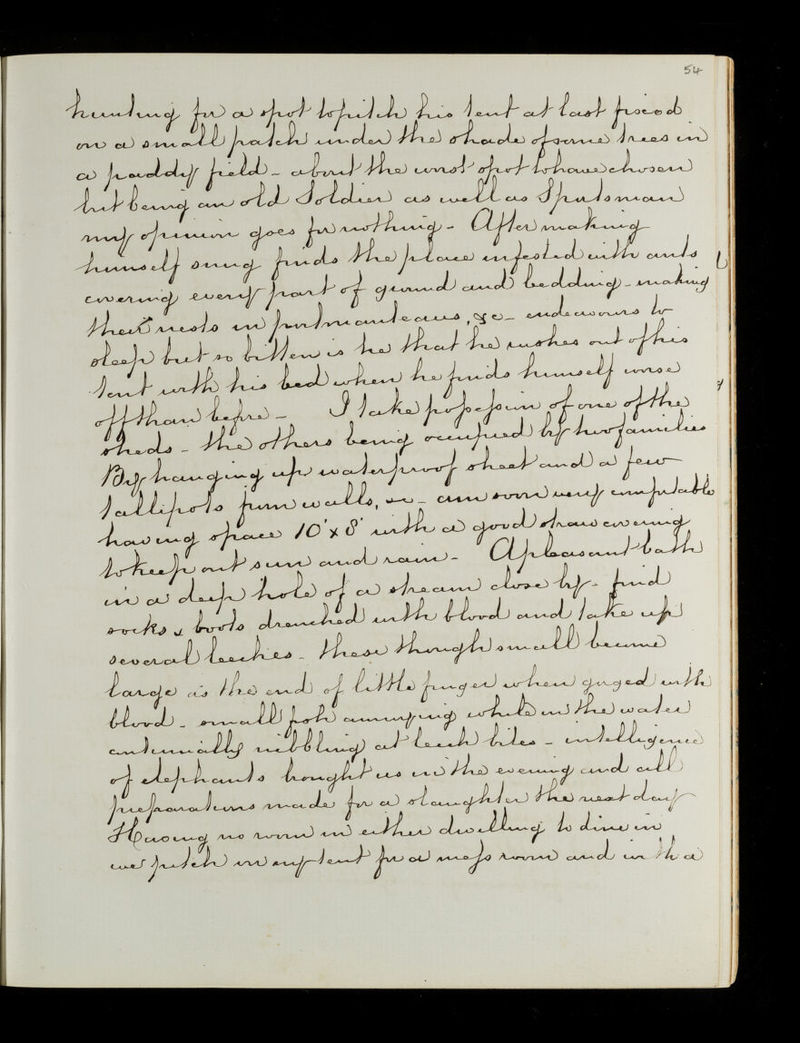 54
hunting for a spot to pitch his tent at last fixed
on a small patch under the shade of some trees in
a paddy field - about the worst spot to have chosen
but being an old Soldier as well as Sportsman
my opinion goes for nothing - After making
himself snug finds the place infested with ants
covering every part of ground and bedding - making
their nests in portmanteaus, &c - endeavours to
sleep but so bitten is he that he rushes out of his
tent with his bed when he finds himself worse
off than before - I take possession of one of the
sheds - the others being occupied by two families
By hanging up waterproof sheet and a few
tallipots from walls, &c - am soon very comfortable
having space 10' x 8' with a good straw covering
to keep out sun and rain - A pleasant bath
in a deep hole of a stream close by - find
socks & boots drenched with blood and take up
several leeches - these though small become
large as the end of little finger when gorged with
blood - small fish annoying while in the water
continually nibbling at leech bites - intelligence
of elephants brought us in the evening and all
preparations made for a slaughter the next day
Having no room in either dwelling to dine in
we pitch my tent for a mess room and with a